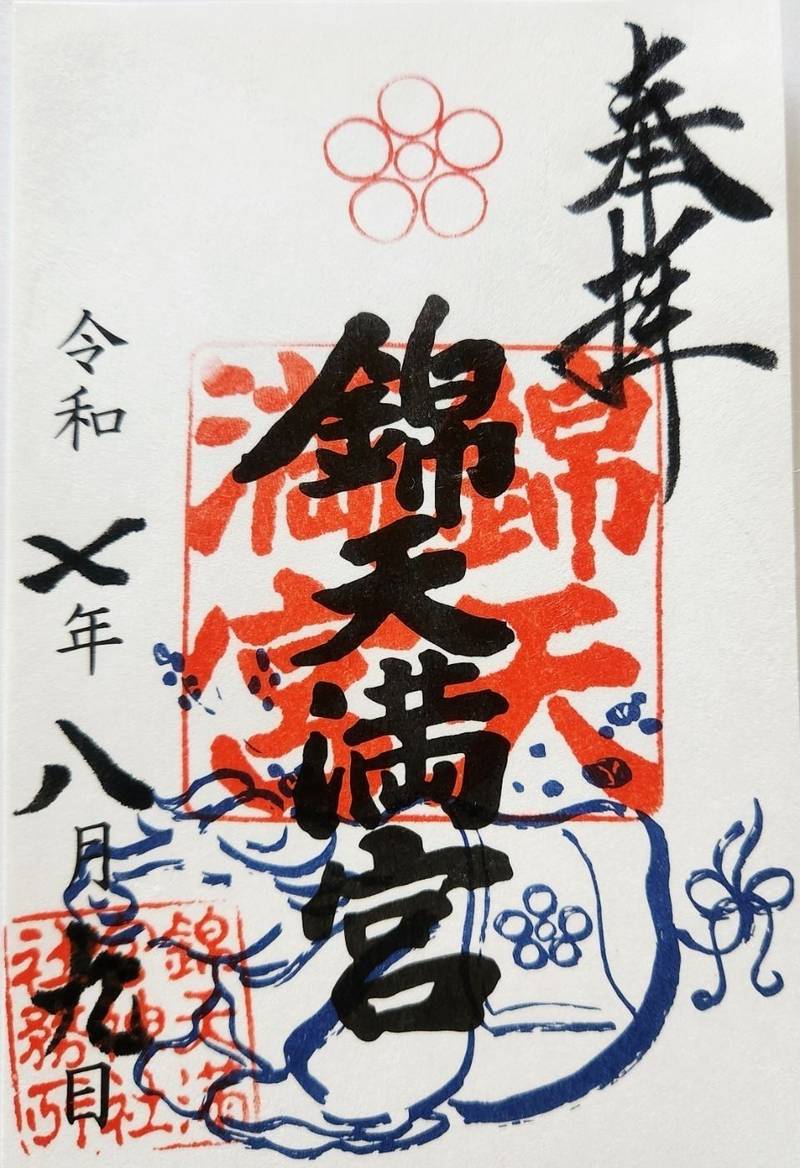 奉拝
錦天満宮
錦天
満宮
令和七年八月九日
錦天満
宮神社
社務所